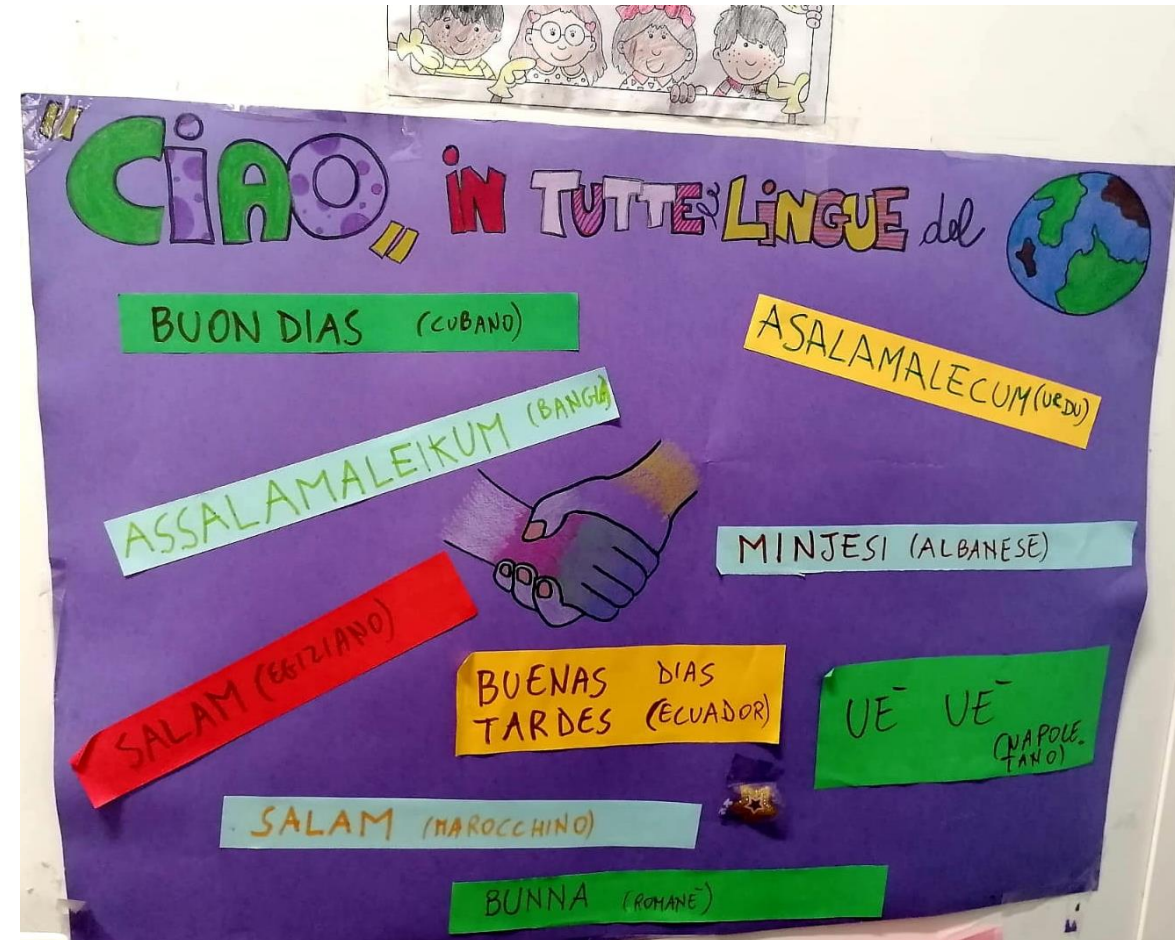 "CIAO" IN TUTTE LE LINGUE del
BUON DIAS (CUBANO)
ASALAMALECUM (URDU)
ASSALAMALEIKUM (BANGLA)
MINJESI (ALBANESE)
SALAM (EGIZIANO)
BUENAS DIAS
TARDES (ECUADOR)
UE UE
(NAPOLE-
TANO)
SALAM (MAROCCHINO)
BUNNA (ROMANE)